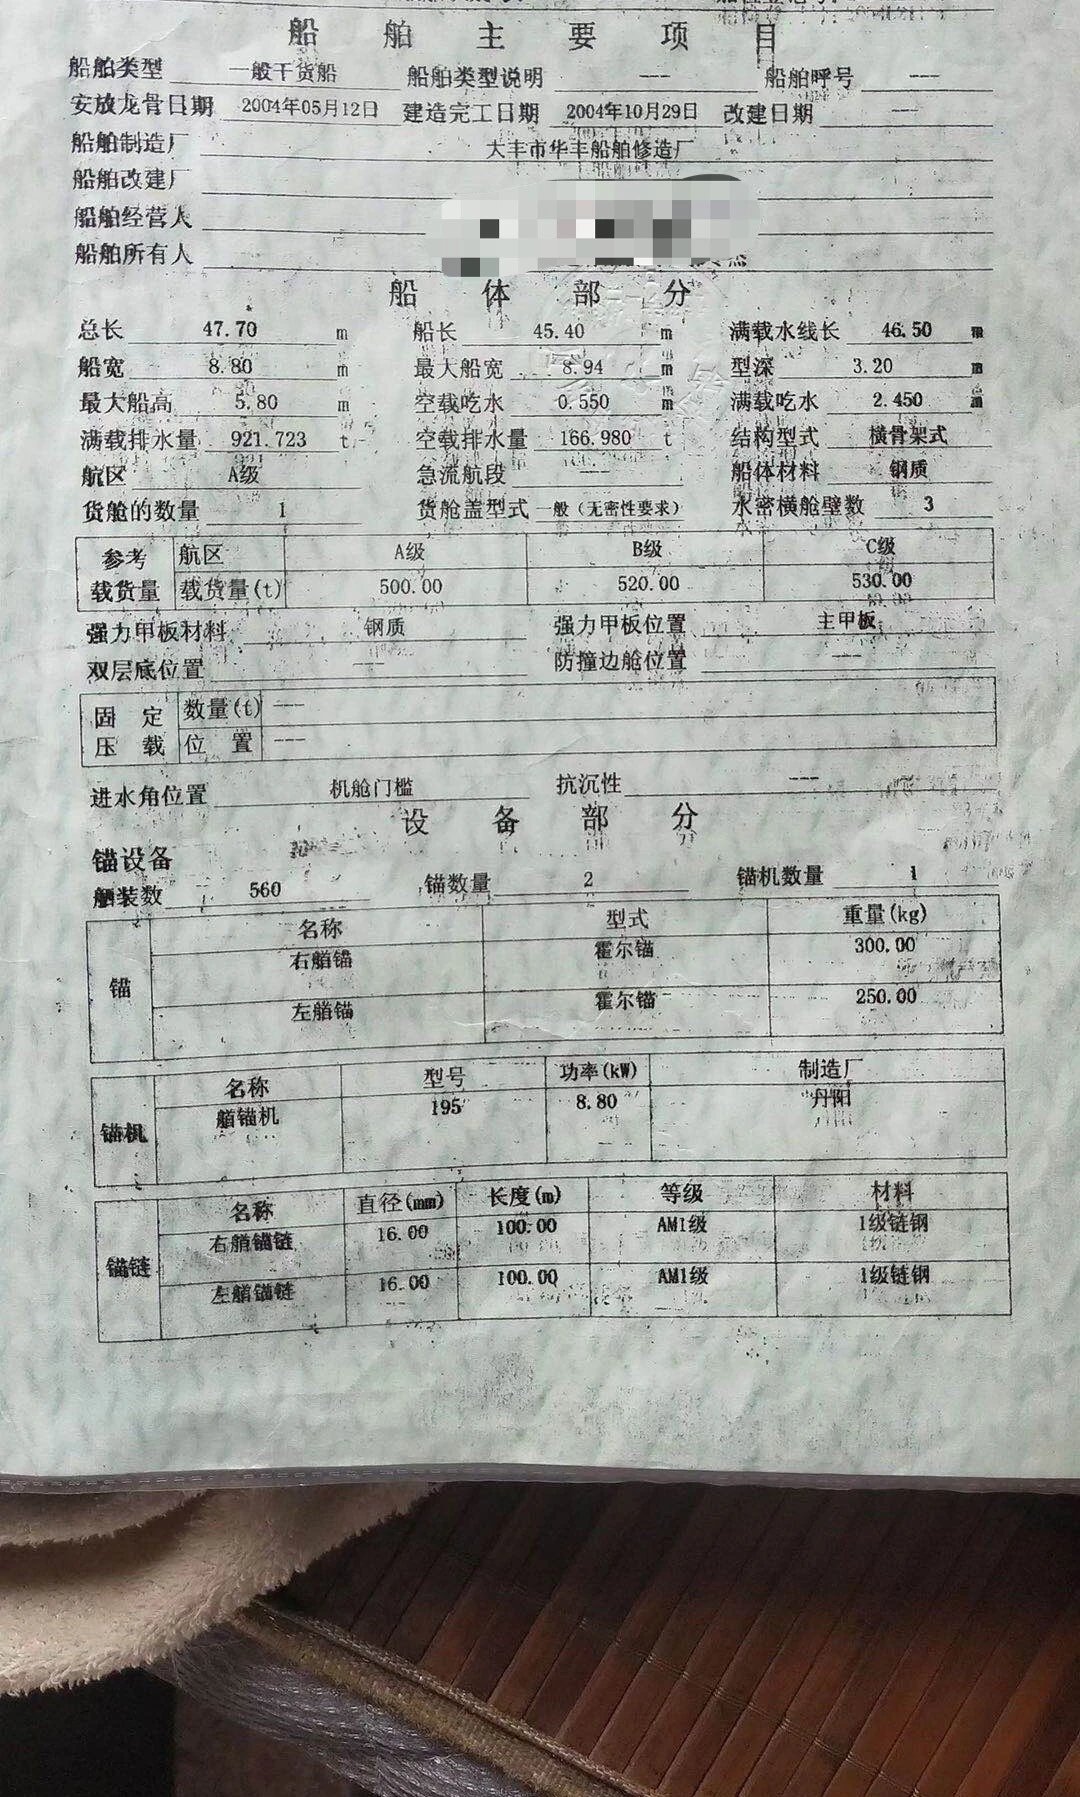 船舶主要项目
船舶类型 一般干货船 船舶类型说明 --- 船舶呼号 ---
安放龙骨日期 2004年05月12日 建造完工日期 2004年10月29日 改建日期 ---
船舶制造厂 大丰市华丰船舶修造厂
船舶改建厂
船舶经营人
船舶所有人
船体部分
总长 47.70 m 船长 45.40 m 满载水线长 46.50 m
船宽 8.80 m 最大船宽 8.94 m 型深 3.20 m
最大船高 5.80 m 空载吃水 0.550 m 满载吃水 2.450 m
满载排水量 921.723 t 空载排水量 166.980 t 结构型式 横骨架式
航区 A级 急流航段 --- 船体材料 钢质
货舱的数量 1 货舱盖型式 一般（无密性要求） 水密横舱壁数 3
参考 航区 A级 B级 C级
载货量 载货量(t) 500.00 520.00 530.00
强力甲板材料 钢质 强力甲板位置 主甲板
双层底位置 --- 防撞边舱位置 ---
固定 数量(t) ---
压载 位置 ---
进水角位置 机舱门槛 抗沉性 ---
设备部分
锚设备
舾装数 560 锚数量 2 锚机数量 1
名称 型式 重量(kg)
右艏锚 霍尔锚 300.00
锚
左艏锚 霍尔锚 250.00
名称 型号 功率(kW) 制造厂
锚机 艏锚机 195 8.80 丹阳
名称 直径(mm) 长度(m) 等级 材料
右艏锚链 16.00 100.00 AM1级 1级链钢
锚链
左艏锚链 16.00 100.00 AM1级 1级链钢